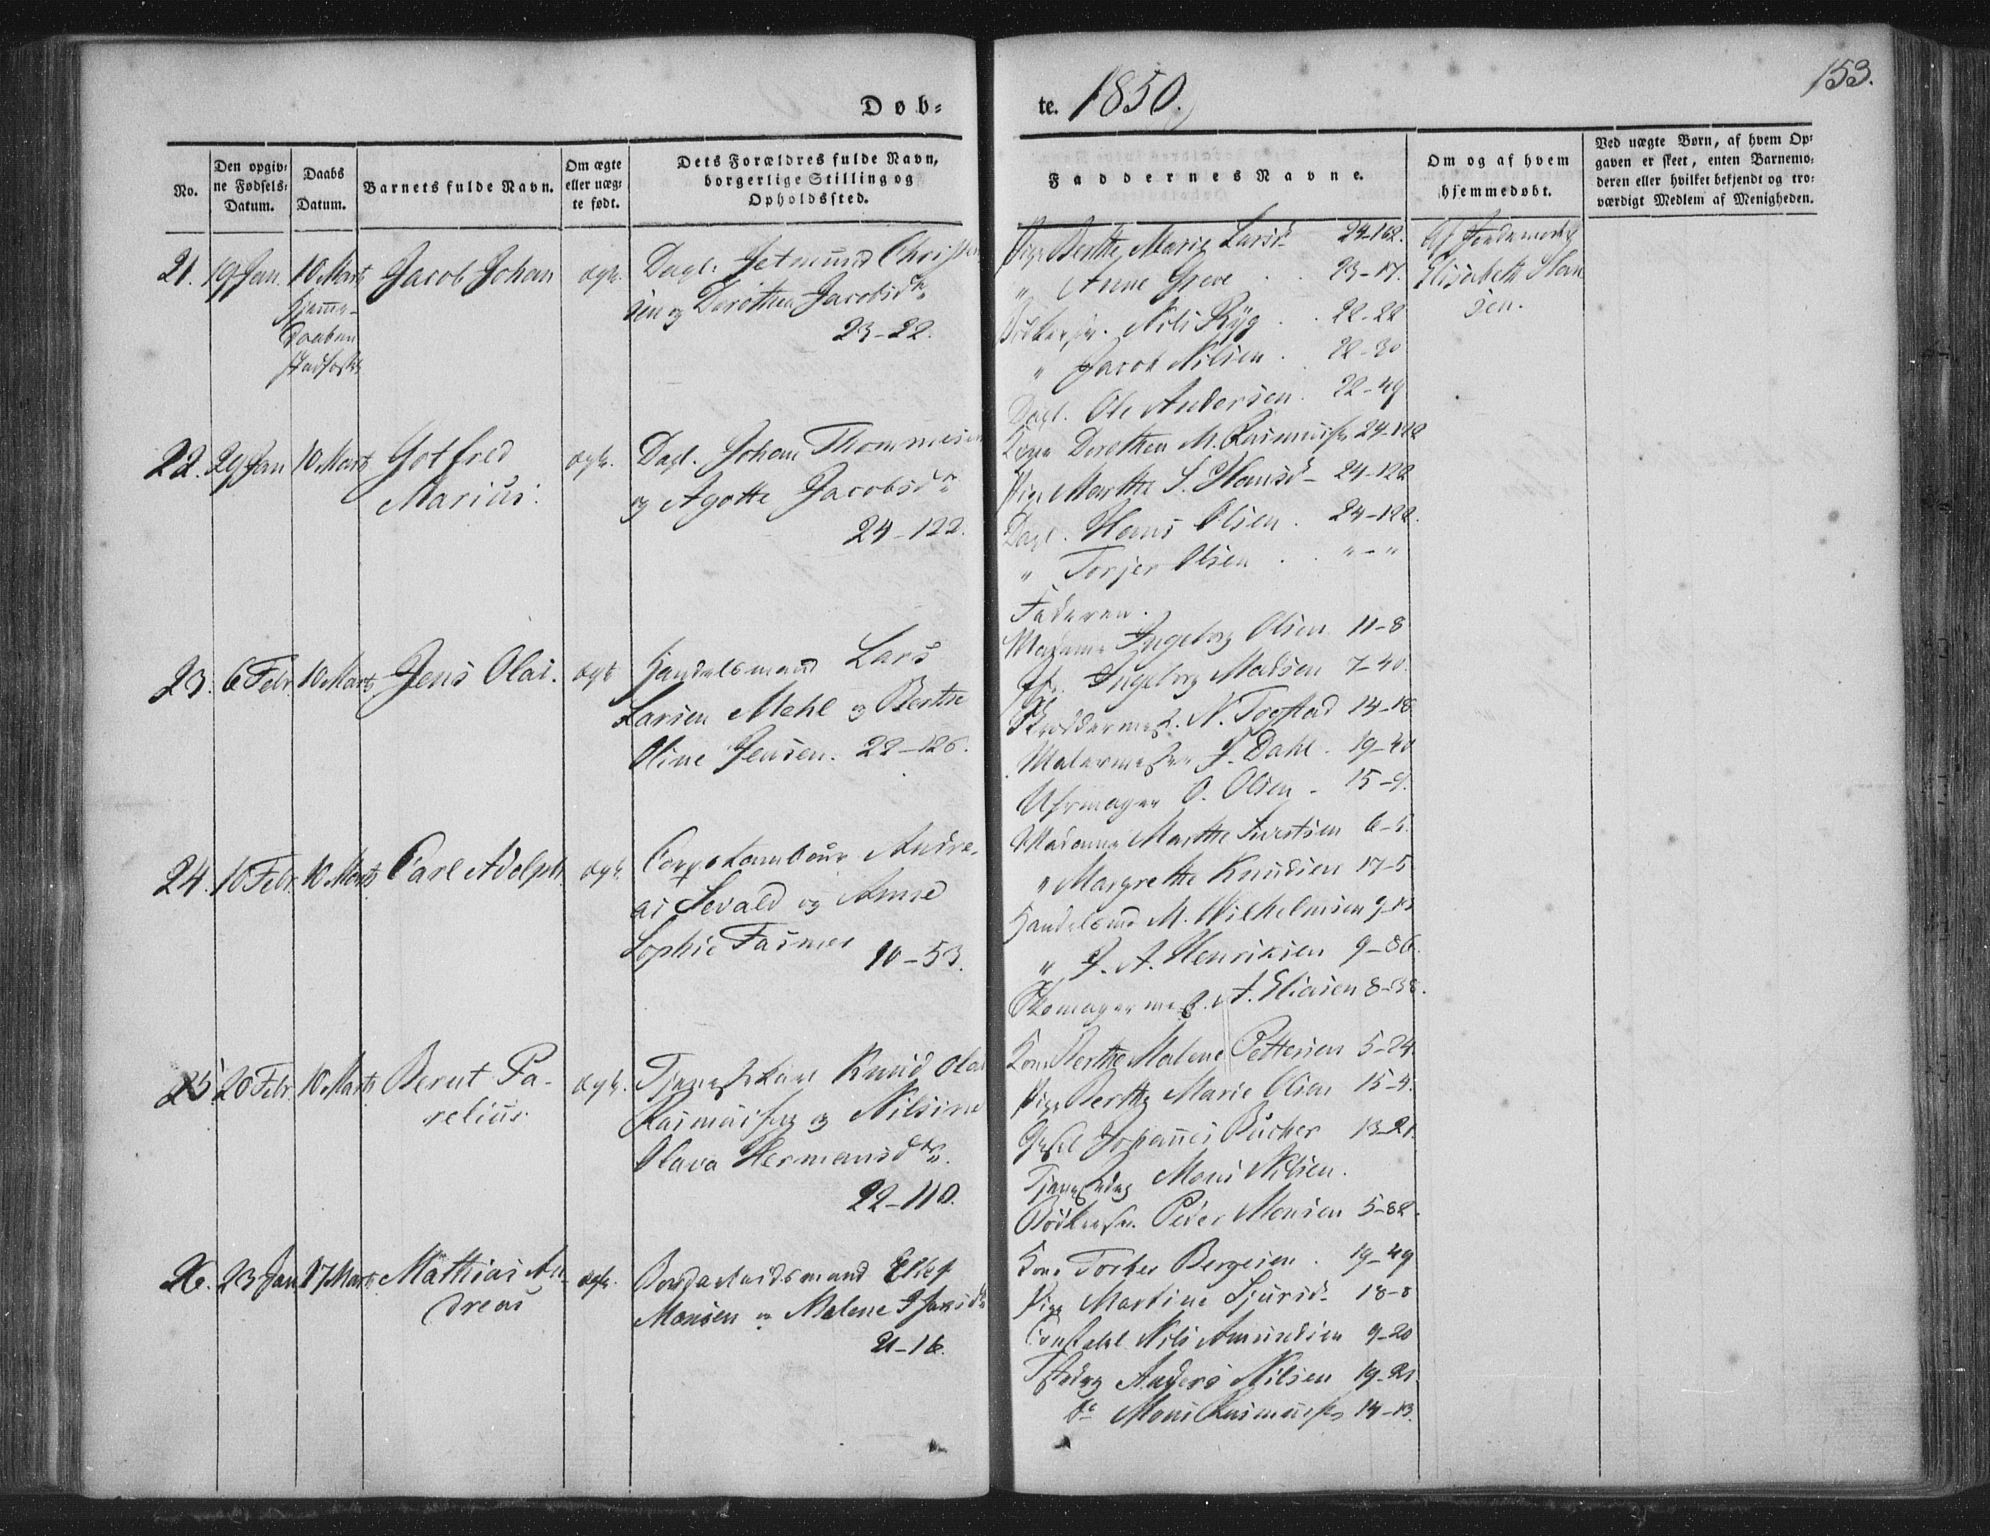 Døb-
te. 1850.
153.
No.
Den opgiv-
ne Fødsels-
Datum.
Daabs
Datum.
Barnets fulde Navn.
Om ægte
eller uæg-
te født.
Dets Forældres fulde Navn,
borgerlige Stilling og
Opholdssted.
Faddernes Navne.
Om og af hvem
hjemmedøbt.
Ved uægte Børn, af hvem Op-
gaven er skeet, enten Barnemo-
deren eller hvilket bekjendt og tro-
værdigt Medlem af Menigheden.
21. 19 Jan. 10 Marts
Hjemme-
daaben
stadfæstet
Jacob Johan
ægte.
Dagl. Christen
sen og Dorothea Jacobsdtr
23-22.
Pige Berthe Marie Larsd. 24-162.
" Anne Greve 23-17.
Nils Ryg 22-22
" Jacob Nilsen 22-30
Dagl. Ole Andersen. 22-49
Af Jordemoder
Elisabeth Han
sen.
22. 29 Jan 10 Marts
Gotfred
Marius.
ægte.
Dagl. Johan Thommesen
og Agotte Jacobsdr
24-122.
Kone Dorothea M. Rasmuss. 24-122
Pige Marthe S. Hansd- 24-122
Dagl. Hans Olsen. 24-122.
" Torjer Olsen " - "
Faderen.
23. 6 Febr 10 Marts
Jens Olai.
ægte
Handelsmand Lars
Larsen Mehl og Berthe
Oline Jensen. 22-126.
Madame Ingeborg Olsen 11-8
Ingeborg Madsen 7-40.
N. Togstad 14-18
Malermester J. Dahl. 19-40
Uhrmager O. Olsen - 15-9.
24. 10 Febr. 10 Marts
Carl Adolph.
ægte.
Corpstambour Andre-
as Sevald og Anne
Sophie Fasmer
10-53.
Madame Marthe Sivertsen 6-5.
" Margrethe Knudsen 17-5
Handelsmd M. Wilhelmsen
" J. A. Henriksen 9-86.
Skomagermest. A. Eliasen 8-38.
25 20 Febr. 10 Marts
Bernt Pa-
relius.
ægte.
Tjenestekarl Knud Olai
Rasmussen og Nilsine
Olava Hermansdtr.
22-110.
Kone Berthe Malene Pettersen 5-24.
Pige Berthe Marie Olsen 15-4.
Johannes Bücher 13-21.
Tjenestedrg Mons Nilsen.
Peder Monsen 5-82.
26. 23 Jan 17 Marts
Mathias An
dreas
ægte.
Ellef
Monsen og Malene
21-16.
Kone Bergesen. 19-49
Pige Martine Sjursd- 18-8
Constabl. Nils Amundsen 9-20
Anders Nilsen 19-21
do Mons Rasmussen 14-13.